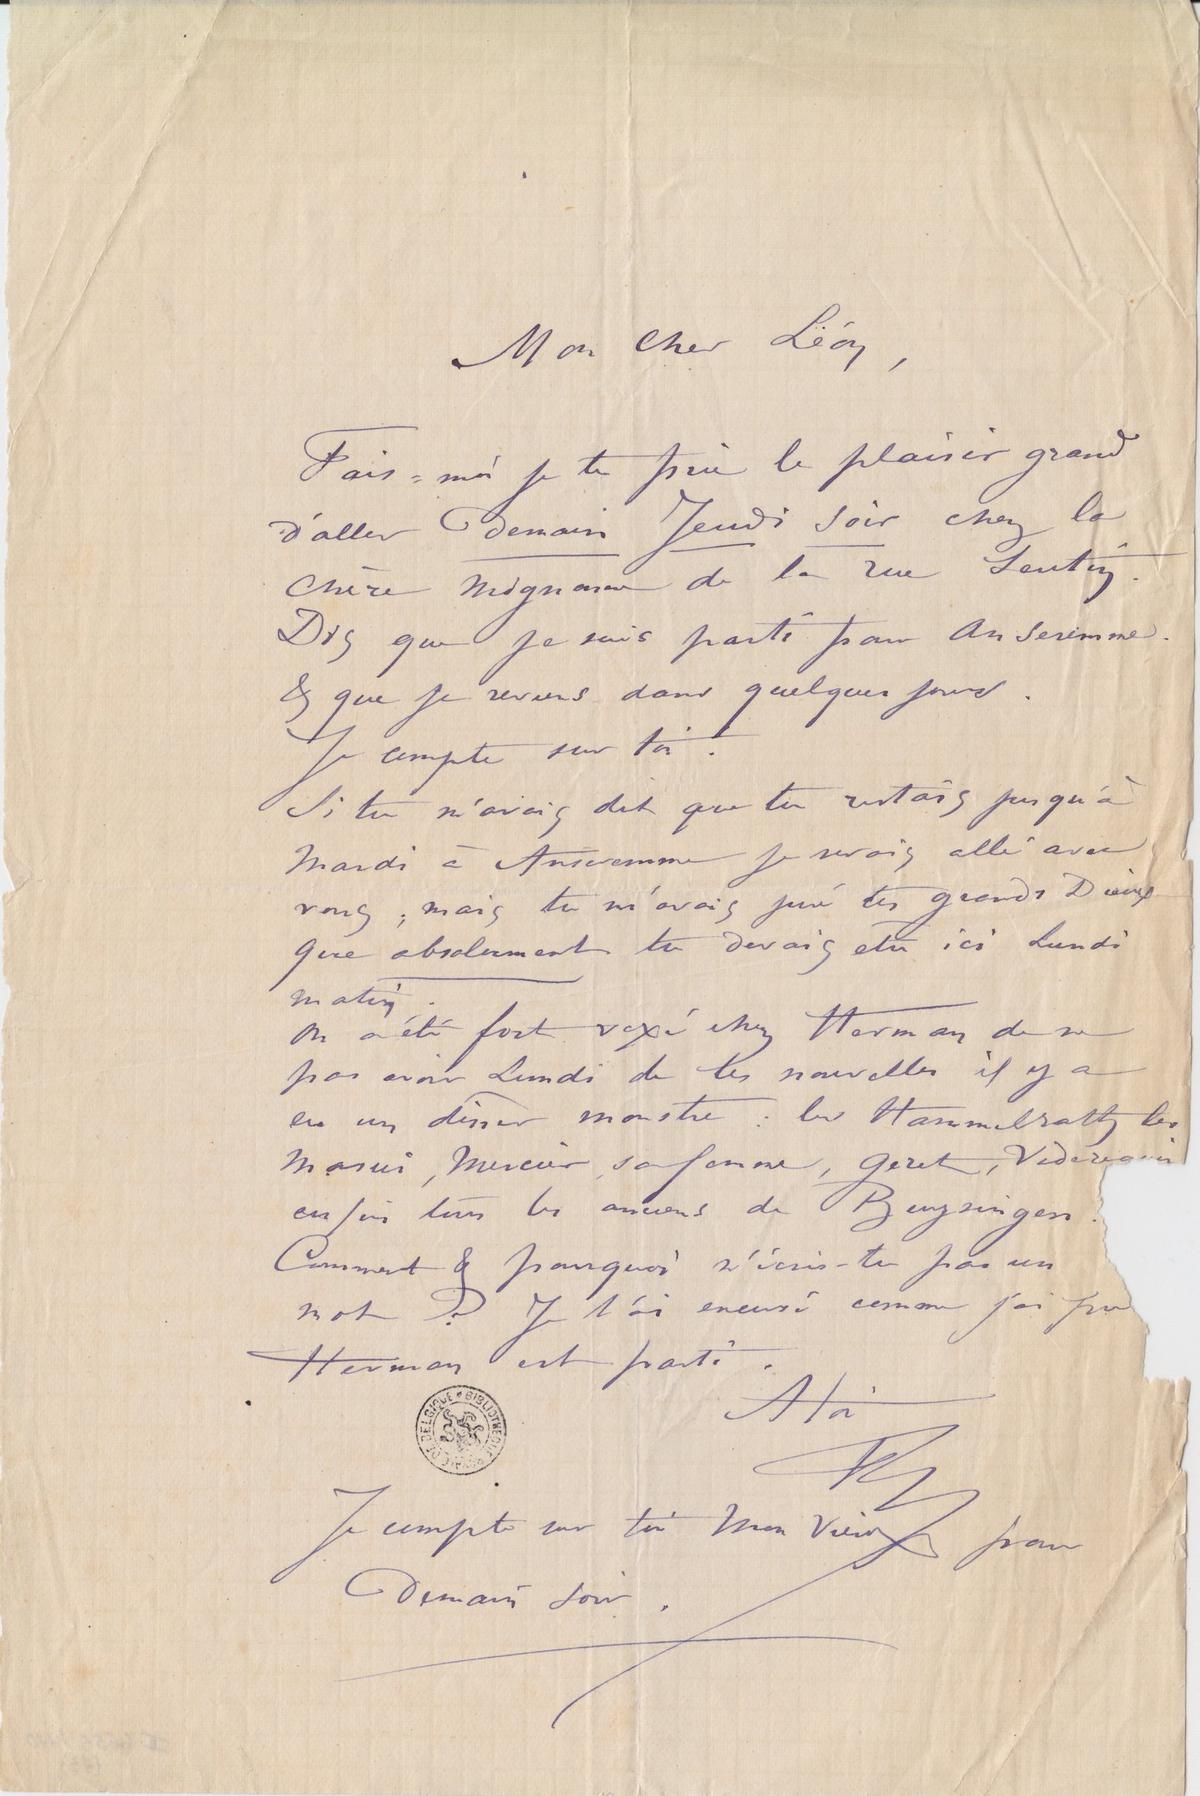 Mon cher Léon,
Fais-moi je te prie le plaisir grand
d'aller Demain Jeudi soir chez la
chère mignonne de la rue
Dis que je suis parti pour Anseremme.
& que je reviens dans quelques jours.
Je compte sur toi.
Si tu m'avais dit que tu restais jusqu'à
Mardi à Anseremme je serais allé avec
vous ; mais tu m'avais juré tes grands Dieux
que absolument tu devais être ici Lundi
matin.
On a été fort vexé chez Herman de ne
pas avoir Lundi de tes nouvelles il y a
eu un dîner monstre : les Hammelrath, les
Masui, Mercier, sa femme, Geret,
enfin tous les anciens de Buysingen.
Comment & pourquoi n'écris-tu pas un
mot ? Je t'ai excusé comme j'ai pu
Herman est parti.
A toi
BIBLIOTHEQUE ROYALE DE BELGIQUE
Je compte sur toi Mon Vieux pour
Demain soir.